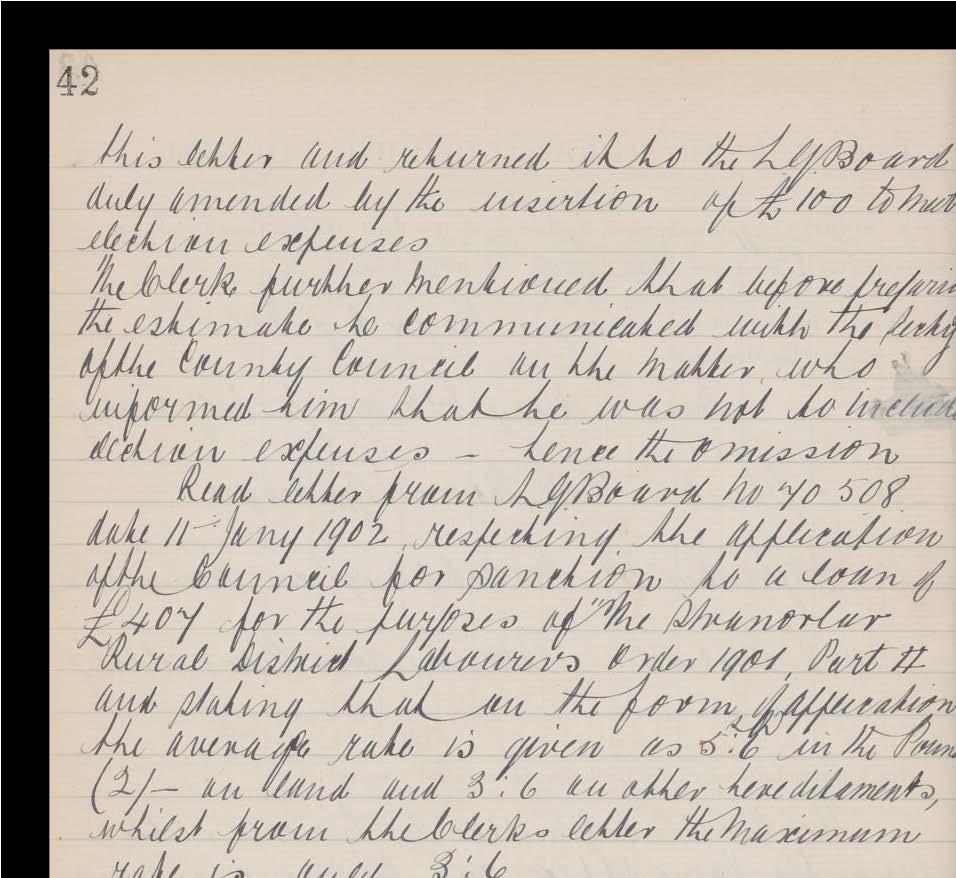 42
this letter and returned it to the L.G.Board
duly amended by the insertion of £100 to meet
election expenses
The Clerk further mentioned that before preparin
the estimate he communicated with the Secty
of the County Council on the matter, who
informed him that he was not to include
election expenses – hence the omission
Read letter from L.G.Board No 70508
date 11 Jany 1902, respecting the application
of the Council for sanction to a loan of
£407 for the purposes of "The Stranorlar
Rural District Labourers Order 1901, Part II
and stating that on the form of application
the average rate is given as 5s:6d in the Poun
(2/– on land and 3:6 on other hereditaments,
whilst from the Clerks letter the maximum
rate is only 3:6